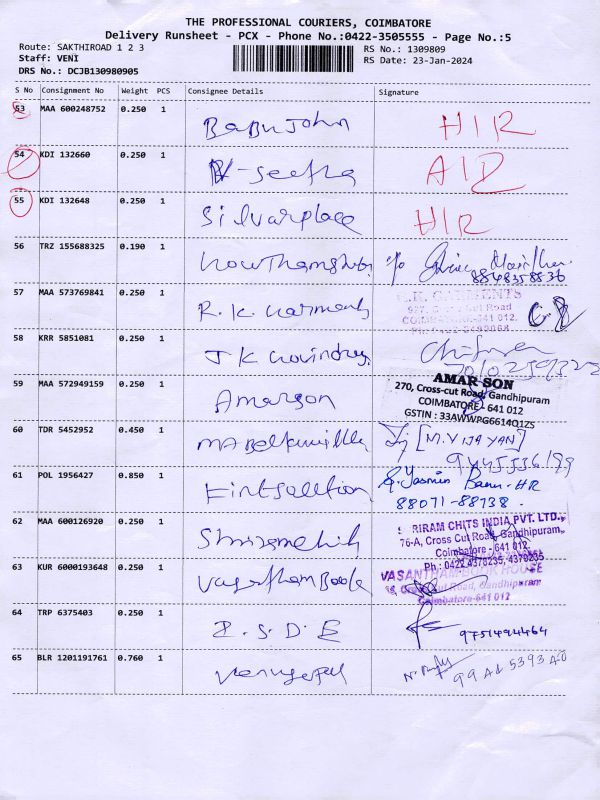 THE PROFESSIONAL COURIERS, COIMBATORE
Delivery Runsheet - PCX - Phone No.:0422-3505555 - Page No.:5
Route: SAKTHIROAD 1 2 3 RS No.: 1309809
Staff: VENI RS Date: 23-Jan-2024
DRS No.: DCJB130980905
S No Consignment No Weight PCS Consignee Details Signature
53 MAA 600248752 0.250 1 Babu John HIR
54 KDI 132660 0.250 1 AID
55 KDI 132648 0.250 1 Silvarplace HIR
56 TRZ 155688325 0.190 1
8848358836
57 MAA 573769841 0.250 1 R.K. Garments
58 KRR 5851081 0.250 1 J K
59 MAA 572949159 0.250 1 Amarson
AMAR SON
270, Cross-cut Road, Gandhipuram
COIMBATORE - 641 012
GSTIN : 33AWWPG6614Q1ZS
60 TDR 5452952 0.450 1 [M.VIJAYAN]
61 POL 1956427 0.850 1 Yasmin Banu-HR
88071-88738
62 MAA 600126920 0.250 1
SRIRAM CHITS INDIA PVT. LTD.,
76-A, Cross Cut Road, Gandhipuram,
Coimbatore - 641 012.
Ph : 0422 4378235, 4370235
63 KUR 6000193648 0.250 1 Vasantham Book
VASANTHAM BOOK HOUSE
Cut Road, Gandhipuram
Coimbatore-641 012
64 TRP 6375403 0.250 1 I.S.D.E 9751494464
65 BLR 1201191761 0.760 1